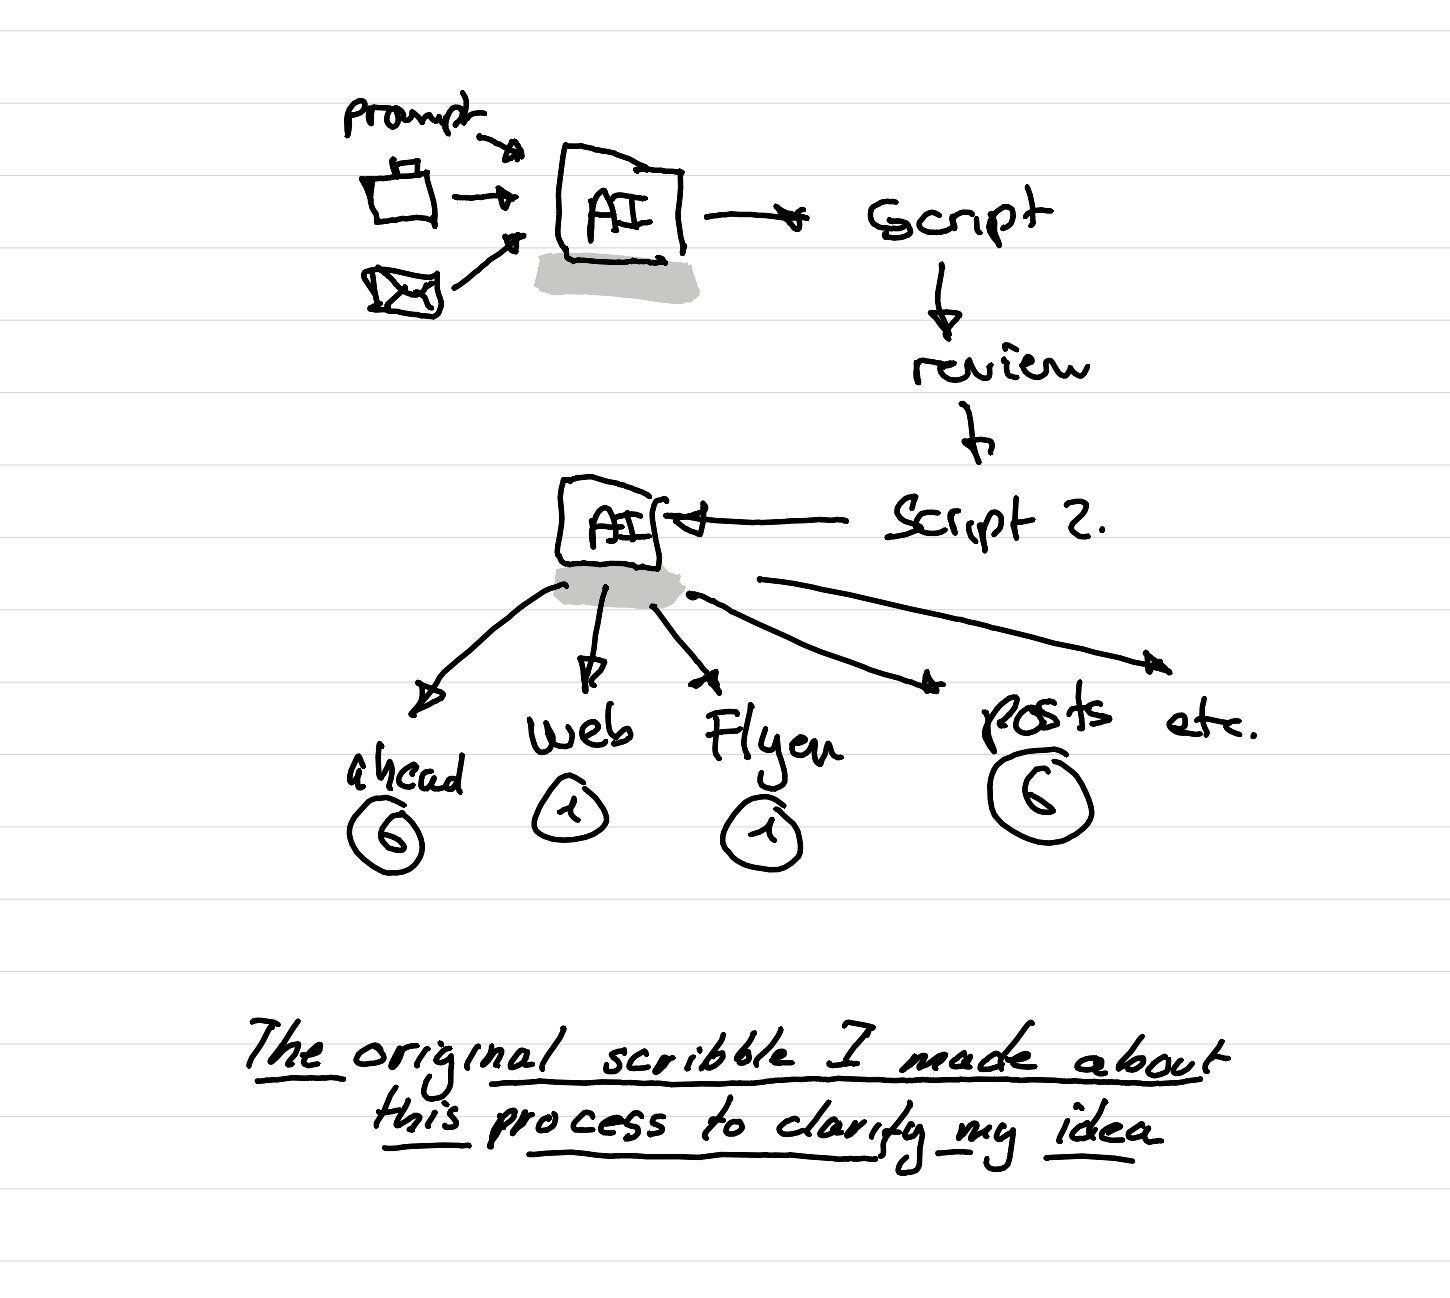 prompt
AI
script
review
AI
Script 2.
ahead
web
Flyer
posts
etc.
6
1
1
6
The original scribble I made about
this process to clarify my idea